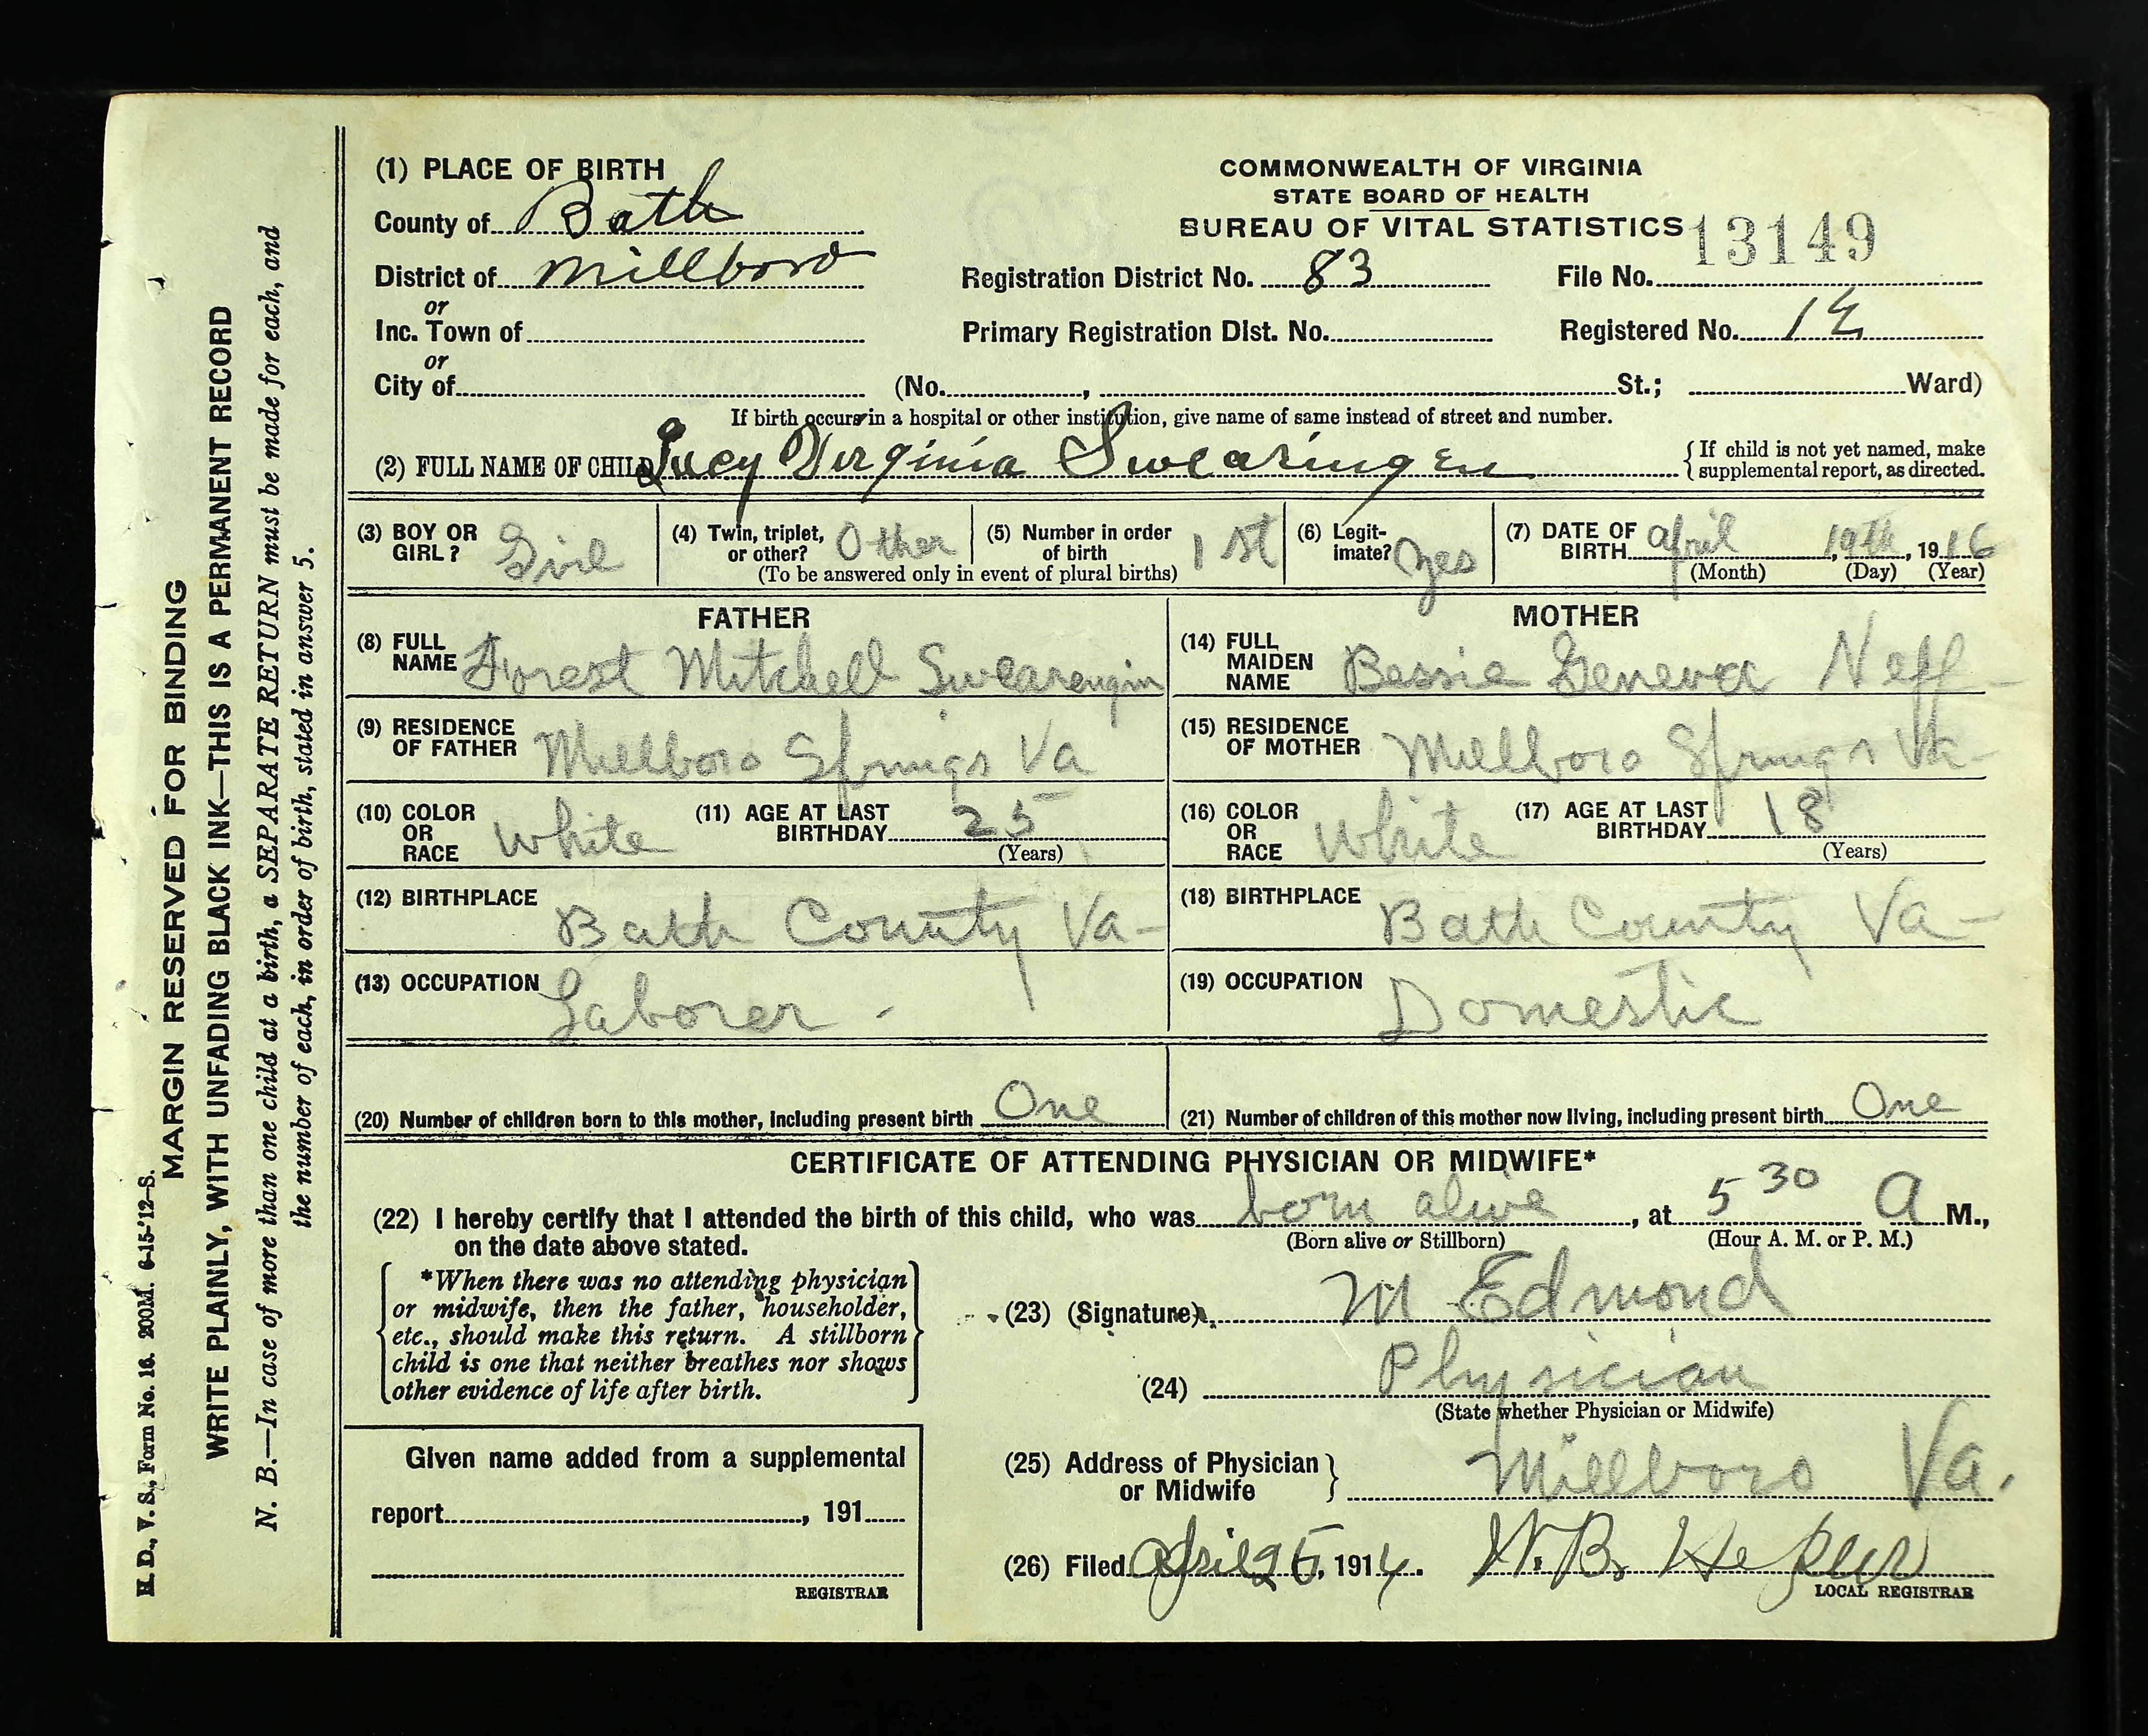 (1) PLACE OF BIRTH
County of Bath
District of Millboro
or
Inc. Town of
or
City of
COMMONWEALTH OF VIRGINIA
STATE BOARD OF HEALTH
BUREAU OF VITAL STATISTICS
13149
Registration District No. 83 File No.
Primary Registration Dist. No. Registered No.
(No. , St.; Ward)
If birth occurs in a hospital or other institution, give name of same instead of street and number.
(2) FULL NAME OF CHILD Lucy Virginia Swearingen
{ If child is not yet named, make
supplemental report, as directed.
(3) BOY OR GIRL? Girl
(4) Twin, triplet, or other? Other
(5) Number in order of birth 1st
(To be answered only in event of plural births)
(6) Legitimate? Yes
(7) DATE OF BIRTH April 19th, 1916
(Month) (Day) (Year)
FATHER
(8) FULL NAME Forest Mitchell Swearengin
(9) RESIDENCE OF FATHER Millboro Springs Va
(10) COLOR OR RACE White
(11) AGE AT LAST BIRTHDAY 25
(Years)
(12) BIRTHPLACE Bath County Va-
(13) OCCUPATION Laborer -
MOTHER
(14) FULL MAIDEN NAME Bessie Geneva Neff-
(15) RESIDENCE OF MOTHER Millboro Springs Va-
(16) COLOR OR RACE White
(17) AGE AT LAST BIRTHDAY 18
(Years)
(18) BIRTHPLACE Bath County Va-
(19) OCCUPATION Domestic
(20) Number of children born to this mother, including present birth One
(21) Number of children of this mother now living, including present birth One
CERTIFICATE OF ATTENDING PHYSICIAN OR MIDWIFE*
(22) I hereby certify that I attended the birth of this child, who was born alive, at 5 30 A M.,
(Born alive or Stillborn) (Hour A. M. or P. M.)
on the date above stated.
*When there was no attending physician
or midwife, then the father, householder,
etc., should make this return. A stillborn
child is one that neither breathes nor shows
other evidence of life after birth.
(23) (Signature) M Edmond
(24) Physician
(State whether Physician or Midwife)
(25) Address of Physician or Midwife } Millboro Va.
Given name added from a supplemental
report , 191
REGISTRAR
(26) Filed April 25, 191 . W. B. Hepler
LOCAL REGISTRAR
H. D., V. S., Form No. 16. 200M. 6-15-'12-S.
MARGIN RESERVED FOR BINDING
WRITE PLAINLY, WITH UNFADING BLACK INK—THIS IS A PERMANENT RECORD
N. B.—In case of more than one child at a birth, a SEPARATE RETURN must be made for each, and
the number of each, in order of birth, stated in answer 5.